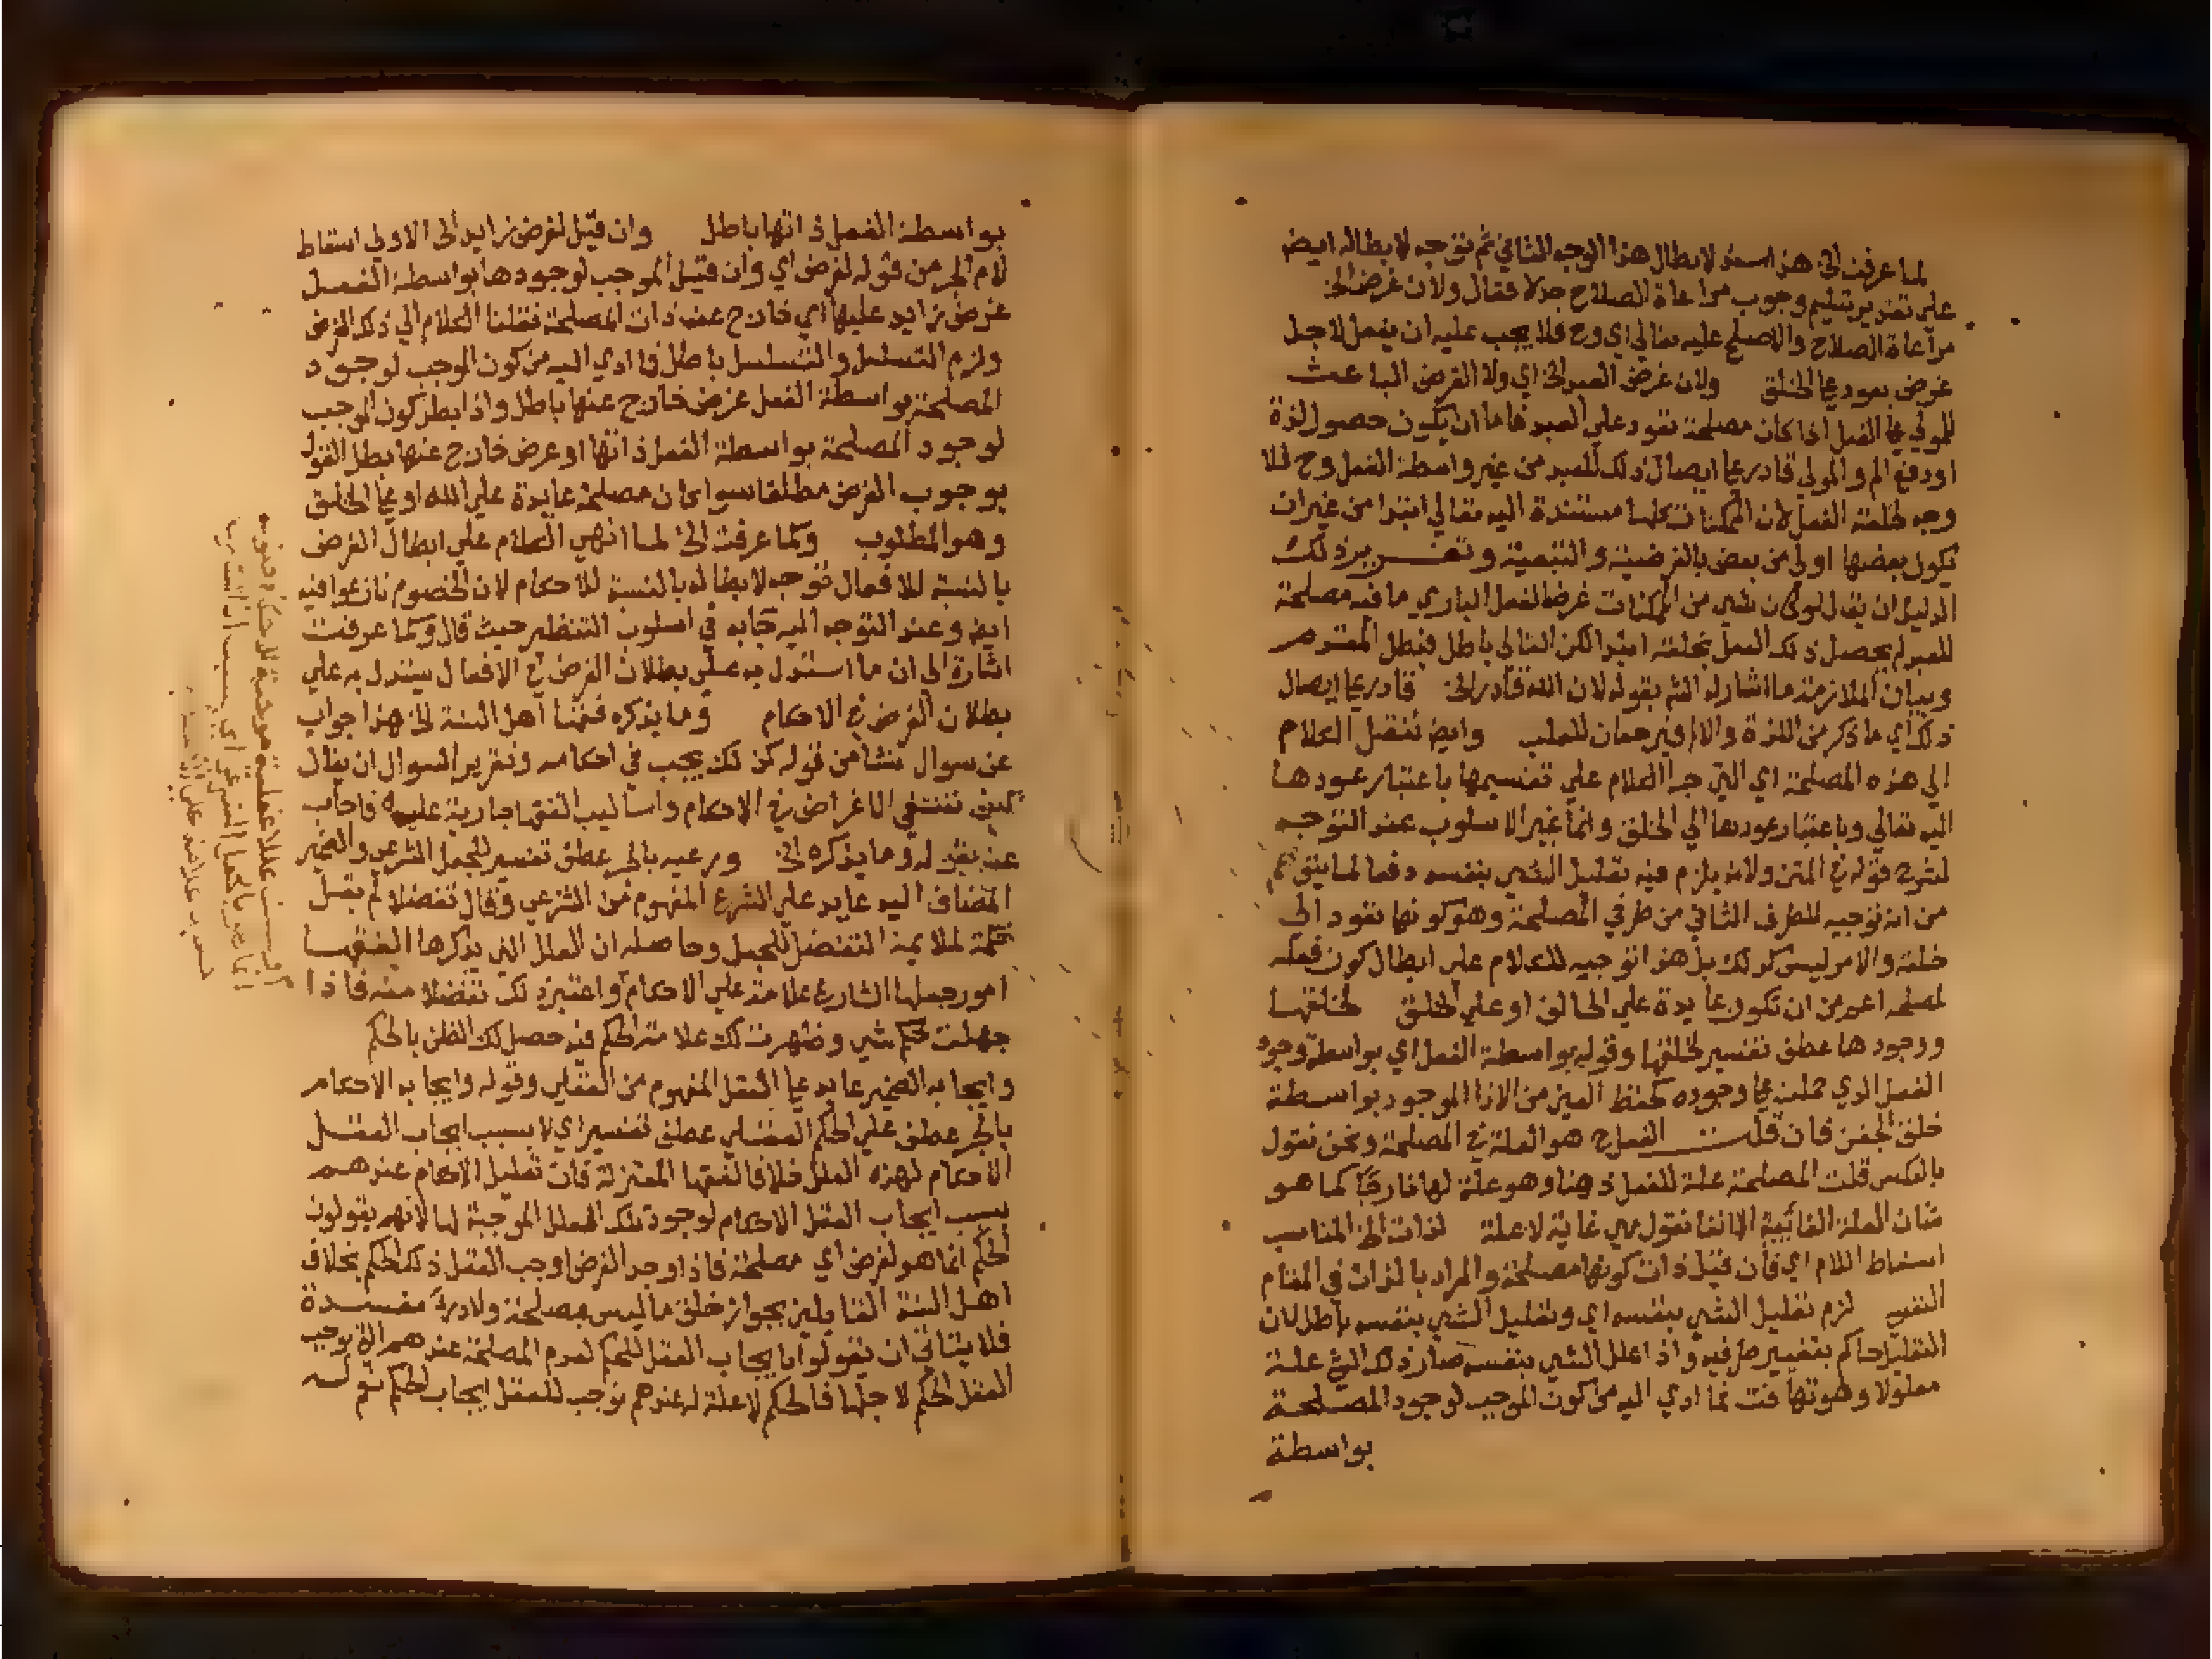 لما عرفت الخ هذا سند لابطال هذا الوجه الثاني ثم توجه لابطاله ايض
علي تقدير تسليم وجوب مراعاة الصلاح جدلا فقال ولان غرض الخ
مراعاة الصلاح والاصلح عليه تعالي اي وح فلا يجب عليه ان يفعل لاجل
غرض يعود علي الخلق ولان غرض العبد الخ اي ولان الغرض الباعث
للمولي علي الفعل اذا كان مصلحة تعود علي العبد فاما ان يكون حصول لذة
او دفع الم والمولي قادر علي ايصال ذلك للعبد من غير واسطة الفعل وح فلا
وجه لخلقه الفعل لان الممكنات كلها مستندة اليه تعالي ابتدا من غير ان
يكون بعضها اولي من بعض بالغرضية والتبعية وتقرير ذلك
الدليل ان يقال لو كان شي من الممكنات غرضا لفعل الباري ما فيه مصلحة
للعبد لم يحصل ذلك الفعل بخلقه ابتدا لكن التالي باطل فبطل المقدم
وبيان الملازمة ما اشار له الشم بقوله لان الله قادر الخ قادر علي ايصال
ذلك اي ما ذكر من اللذة والالم فيرجعان للعبد وايض ننقل الكلام
الي هذه المصلحة اي التي جر الكلام علي تقسيمها باعتبار عودها
اليه تعالي وباعتبار عودها الي الخلق وانما غير الاسلوب عند التوجه
لشرح قوله في المتن ولانه يلزم فيه تعليل الشي بنفسه دفعا لما يتوهم
من انه توجيه للطرف الثاني من طرفي المصلحة وهو كونها تعود الي
خلقه والامر ليس كذلك بل هذا توجيه للكلام علي ابطال كون فعله
لمصلحة اعم من ان تكون عايدة علي الخالق او علي الخلق لخلقها
ووجودها عطف تفسير لخلقها وقوله بواسطة الفعل اي بواسطة وجود
الفعل الذي حملت علي وجوده كحفظ العين من الاذا الموجود بواسطة
خلق الجفن فان قلت الفعل ح هو العلة في المصلحة ونحن نقول
بالعكس قلت المصلحة علة للفعل ذهنا وهو علة لها خارجا كما هو
شان العلة الغائية الا اننا نقول هي غاية لا علة لذاته الخ المناسب
اسقاط اللام اي فان قيل ذات كونها مصلحة والمراد بالذات في المقام
النفس لزم تعليل الشي بنفسه اي وتعليل الشي بنفسه باطل لان
التعليل حاكم بتغيير طرفيه واذا علل الشي بنفسه صار ذلك الشي علة
معلولا وهو تهافت فما ادي اليه من كون الموجب لوجود المصلحة
بواسطة
بواسطة الفعل ذاتها باطل وان قيل لغرض زايد الخ الاولي اسقاط
لام الجر من قوله لغرض اي وان قيل الموجب لوجودها بواسطة الفعل
غرض زايد عليها اي خارج عنه ذات المصلحة نقلنا الكلام الي ذلك الغرض
ولزم التسلسل والتسلسل باطل فما ادي اليه من كون الموجب لوجود
المصلحة بواسطة الفعل غرض خارج عنها باطل واذا بطل كون الموجب
لوجود المصلحة بواسطة الفعل ذاتها او غرض خارج عنها بطل القول
بوجوب الغرض مطلقا سوا كان مصلحة عايدة علي الله او علي الخلق
وهو المطلوب وكما عرفت الخ لما انهي الكلام علي ابطال الغرض
بالنسبة للافعال توجه لابطاله بالنسبة للاحكام لان الخصوم نازعوا فيه
ايض وعند التوجه اليه جا به في اسلوب التنظير حيث قال وكما عرفت
اشارة الي ان ما استدل به علي بطلان الغرض في الافعال يستدل به علي
بطلان الغرض في الاحكام وما يذكره فقهنا اهل السنة الخ هذا جواب
عن سوال نشا من قوله كذلك يجب في احكامه وتقرير السوال ان يقال
كيف تنتفي الاغراض في الاحكام واساليب الفقها جارية عليه فاجاب
عنه بقوله وما يذكره الخ ورعيه بالجر عطف تفسير للجعل الشرعي والضمير
المضاف اليه عايد علي الشرع المفهوم من الشرعي وقال تفضلا لم يقل
حكمة لملايمة التفضل للجعل وحاصله ان العلل التي يذكرها الفقها
امور جعلها الشارع علامة علي الاحكام واعتبر ذلك تفضلا منه فاذا
جهلت حكم شي وظهرت لك علامة الحكم فيه حصل لك الظن بالحكم
وايجابه الضمير عايد علي العقل المفهوم من العقلي وقوله وايجابه الاحكام
بالجر عطف علي الحكم العقلي عطف تفسير اي لا بسبب ايجاب العقل
الاحكام لهذه العلل خلافا لفقها المعتزلة فان تعليل الاحكام عندهم
بسبب ايجاب العقل الاحكام لوجود تلك العلل الموجبة لها لانهم يقولون
الحكم انما هو لغرض اي مصلحة فاذا وجد الغرض اوجب العقل ذلك الحكم بخلاف
اهل السنة القايلين بجواز خلق ما ليس مصلحة ولا درء مفسدة
فلا يتاتي ان يقولوا بايجاب العقل للحكم لعدم المصلحة عندهم التي يوجب
العقل الحكم لاجلها فالحكم لا علة له عندهم توجب للعقل ايجاب الحكم قوله